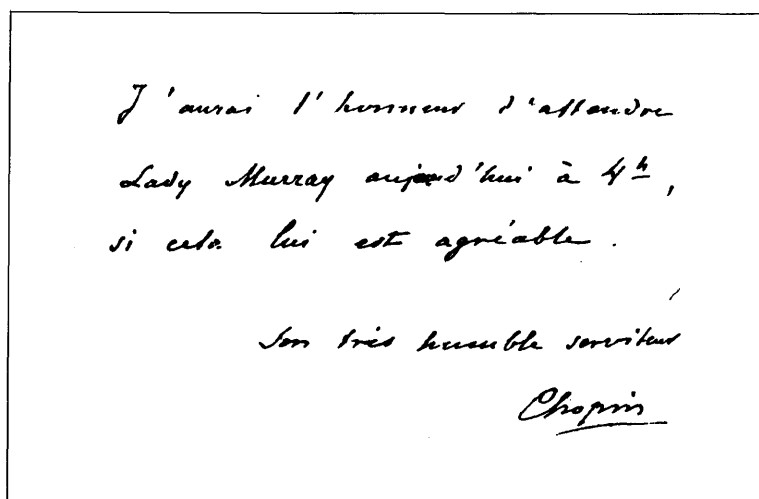 J'aurai l'honneur d'attendre
Lady Murray aujourd'hui à 4h,
si cela lui est agréable.
Son très humble serviteur
Chopin